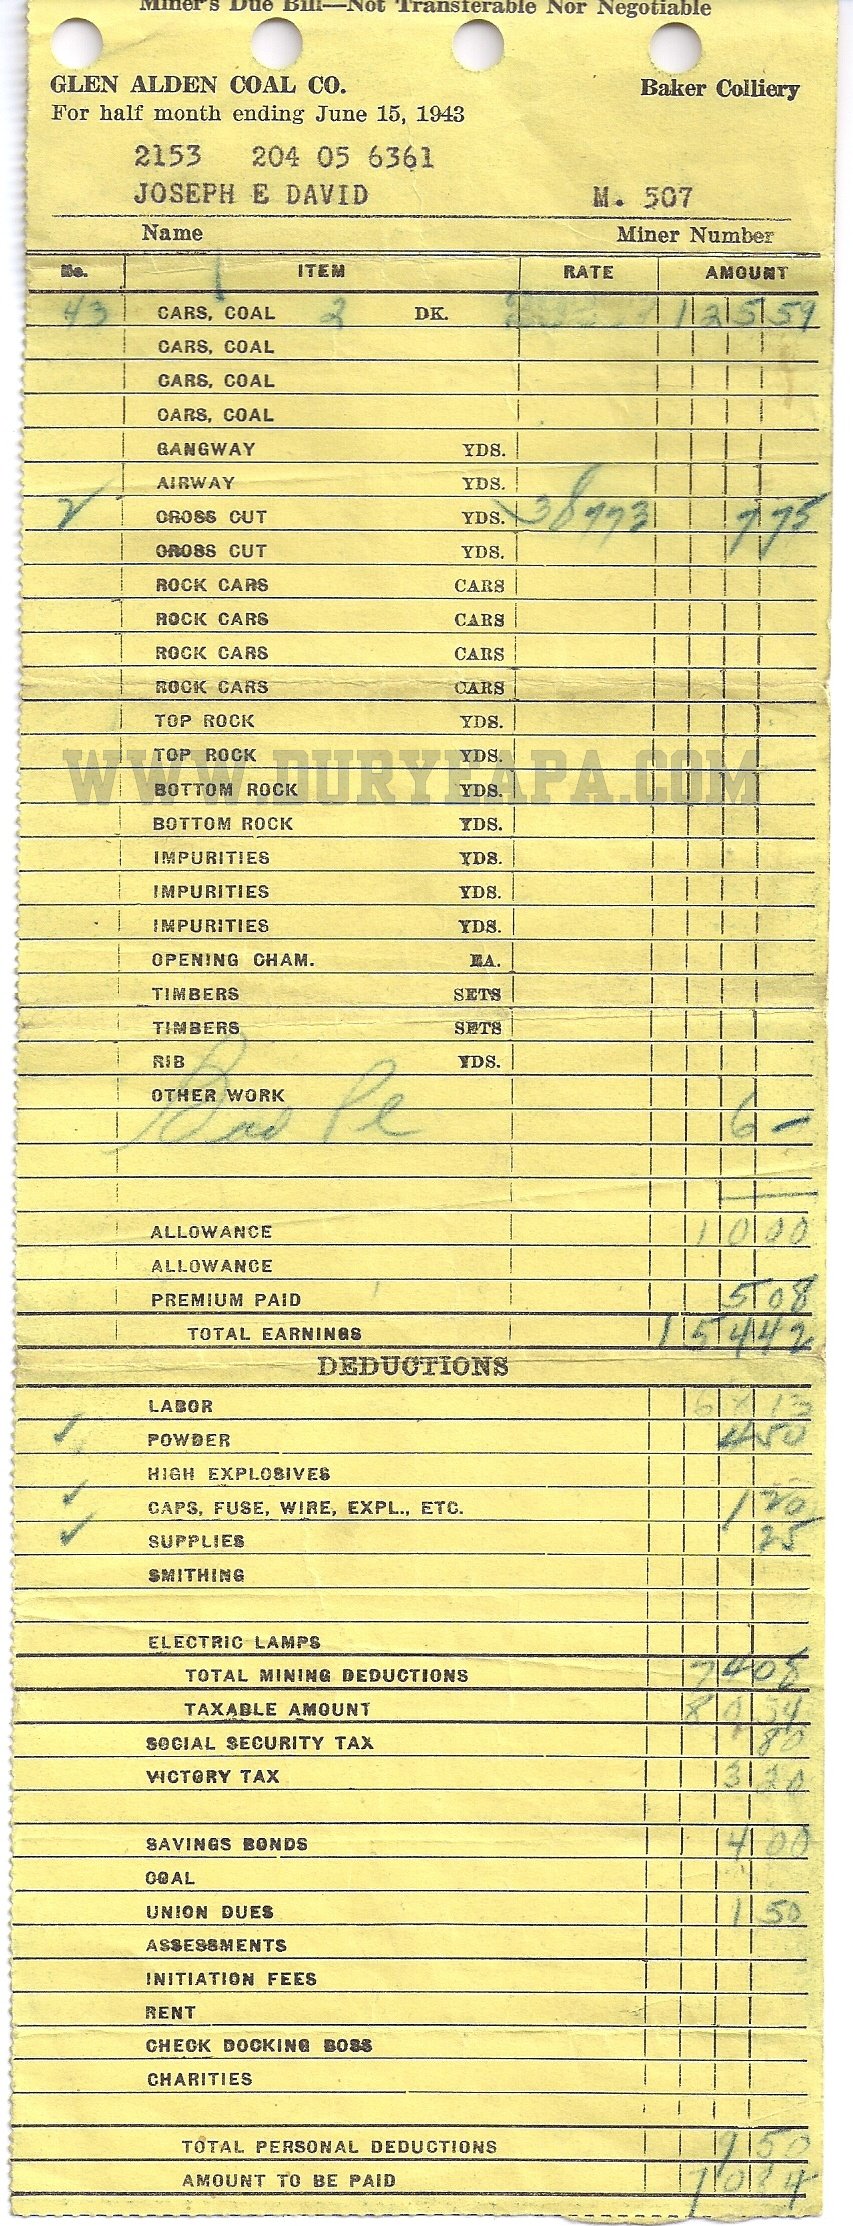 Miner's Due Bill—Not Transferable Nor Negotiable
GLEN ALDEN COAL CO. Baker Colliery
For half month ending June 15, 1943
2153 204 05 6361
JOSEPH E DAVID M. 507
Name Miner Number
No. ITEM RATE AMOUNT
43 CARS, COAL 2 DK. 125 59
CARS, COAL
CARS, COAL
CARS, COAL
GANGWAY YDS.
AIRWAY YDS.
2 CROSS CUT YDS. 38773 7 75
CROSS CUT YDS.
ROCK CARS CARS
ROCK CARS CARS
ROCK CARS CARS
ROCK CARS CARS
TOP ROCK YDS.
TOP ROCK YDS.
WWW.DURYEAPA.COM
BOTTOM ROCK YDS.
BOTTOM ROCK YDS.
IMPURITIES YDS.
IMPURITIES YDS.
IMPURITIES YDS.
OPENING CHAM. EA.
TIMBERS SETS
TIMBERS SETS
RIB YDS.
OTHER WORK
6 —
ALLOWANCE 10 00
ALLOWANCE
PREMIUM PAID 5 08
TOTAL EARNINGS 154 42
DEDUCTIONS
LABOR 13
✓ POWDER 4 50
HIGH EXPLOSIVES
✓ CAPS, FUSE, WIRE, EXPL., ETC. 1 20
✓ SUPPLIES 25
SMITHING
ELECTRIC LAMPS
TOTAL MINING DEDUCTIONS 74 08
TAXABLE AMOUNT 80 34
SOCIAL SECURITY TAX 80
VICTORY TAX 3 20
SAVINGS BONDS 4 00
COAL
UNION DUES 1 50
ASSESSMENTS
INITIATION FEES
RENT
CHECK DOCKING BOSS
CHARITIES
TOTAL PERSONAL DEDUCTIONS 9 50
AMOUNT TO BE PAID 70 84